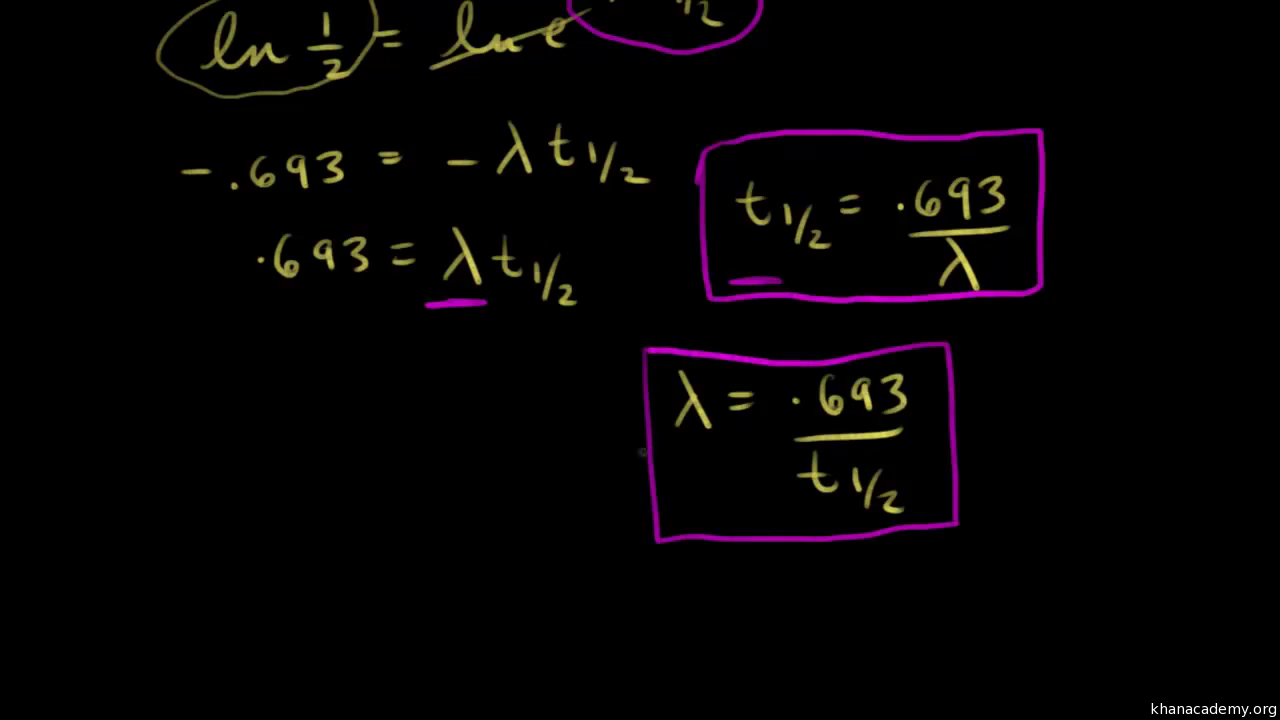 ln 1/2 = ln e
- .693 = - λ t 1/2
.693 = λ t 1/2
t 1/2 = .693 / λ
λ = .693 / t 1/2
khanacademy.org